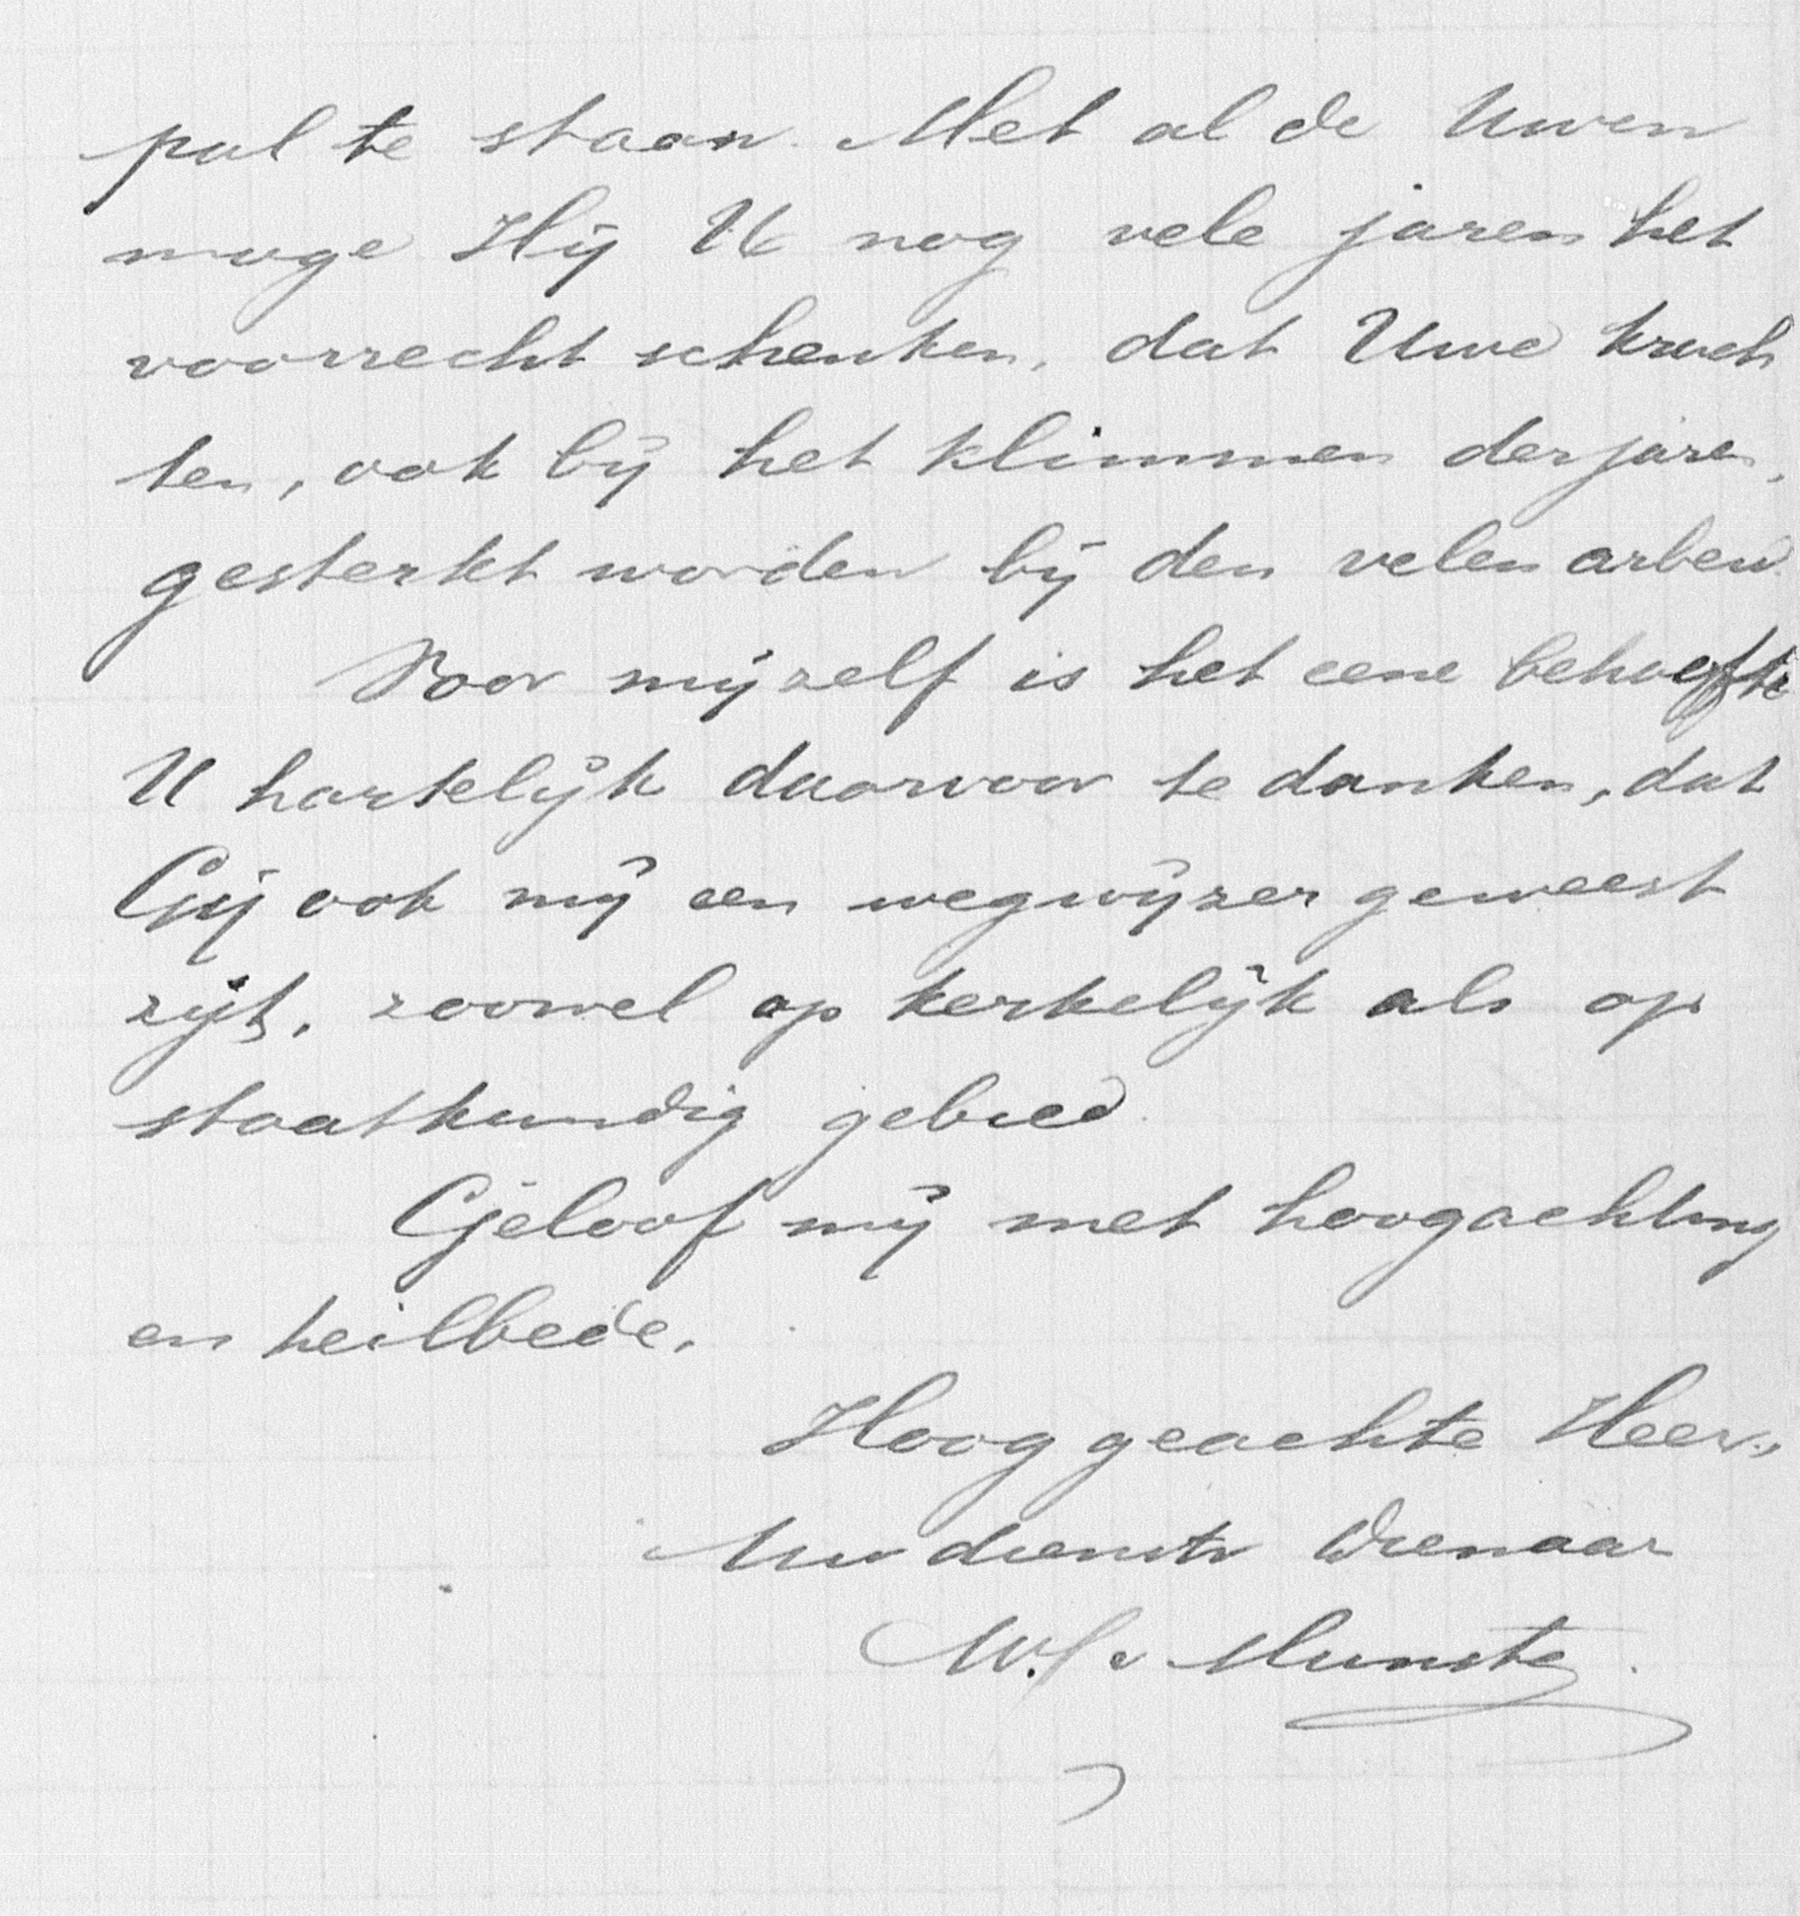 pal te staan. Met al de Uwen
moge Hij U nog vele jaren het
voorrecht schenken, dat Uwe krach
ten, ook bij het klimmen der jaren,
gesterkt worden bij den velen arbeid.
Voor mijzelf is het eene behoefte
U hartelijk daarvoor te danken, dat
Gij ook mij een wegwijzer geweest
zijt, zoowel op kerkelijk als op
staatkundig gebied.
Geloof mij met hoogachting
en heilbede,
Hooggeachte Heer,
Uw dienstv Dienaar
Munster